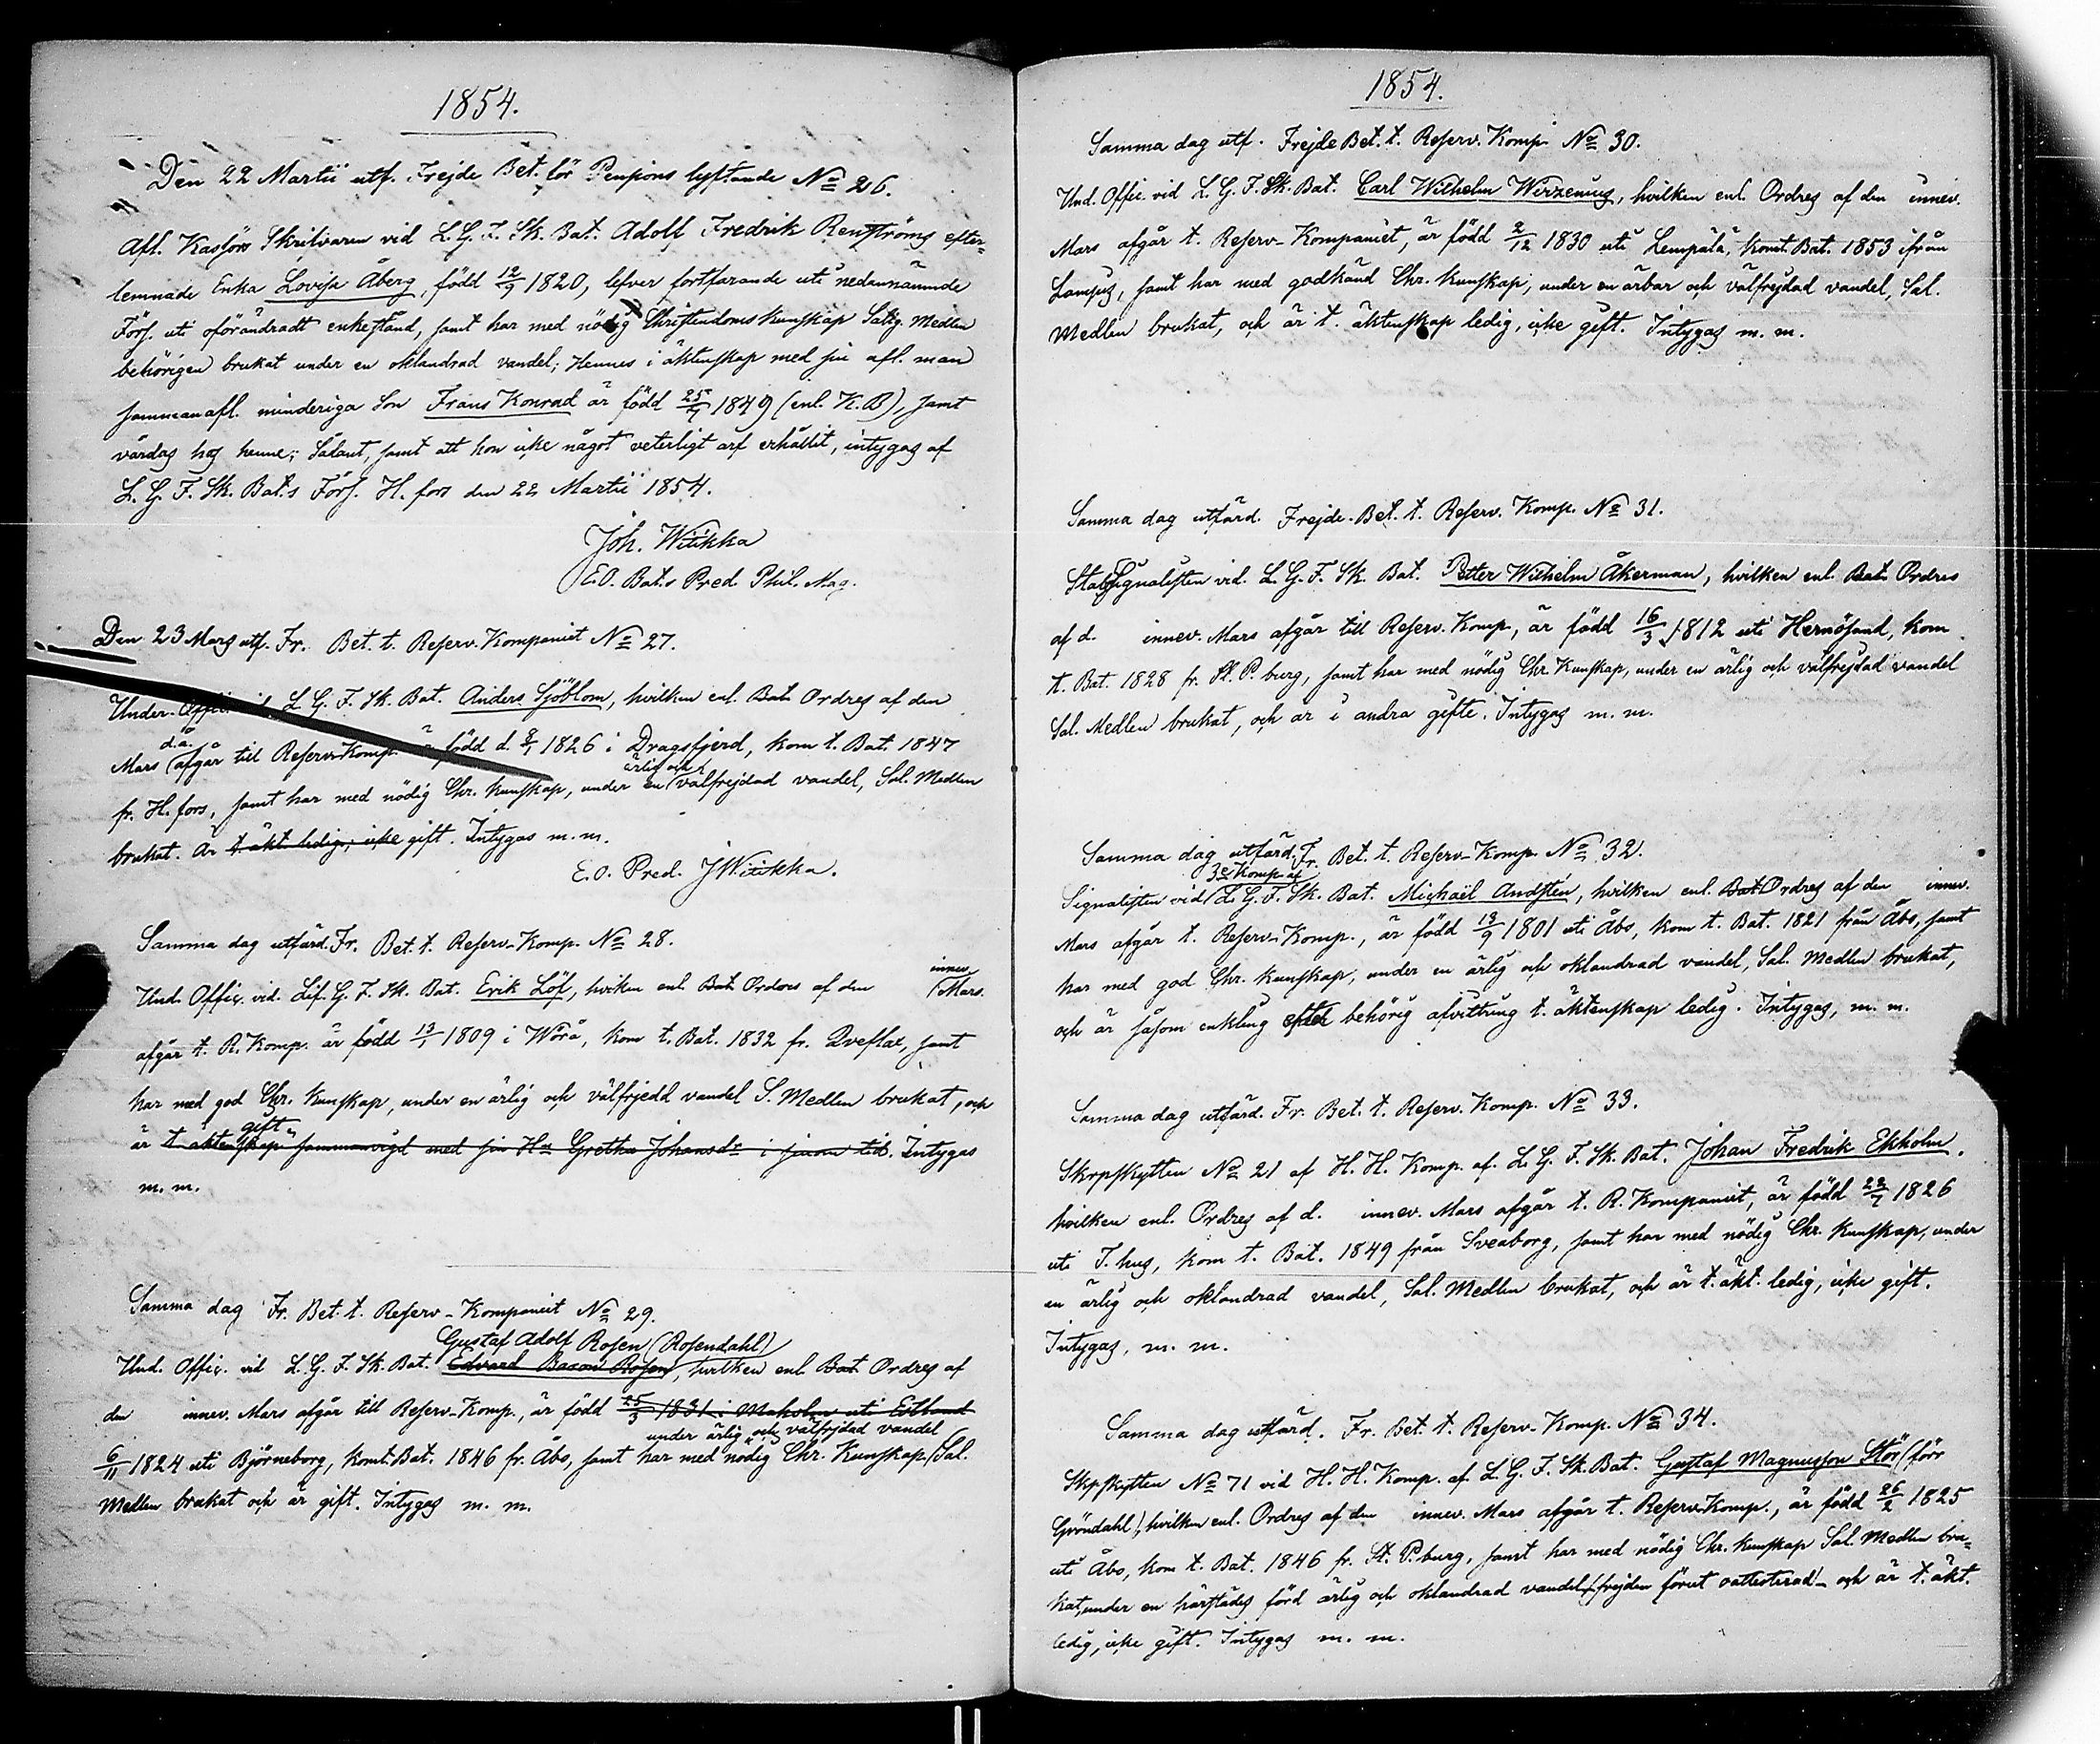 1854.
Den 22 Martii utf. Frejde Bet. för Pensions lyftande No 26.
Afl. Kassörs Skrifvaren vid L. G. F. Sk. Bat. Adolf Fredrik Renströms efter-
lemnade Enka Lovisa Åberg, född 12/9 1820, lefver fortfarande uti nedannämnde
Förs. uti oförändradt enkestånd, samt har med nödig Christendomskunskap Salig. Medlen
behörigen brukat under en oklandrad vandel; Hennes i äktenskap med sin afl. man
sammanafl. minderåriga Son Frans Konrad är född 25/4 1849 (enl. K. B), samt
vårdas hos henne; Sådant, samt att hon icke något veterligt arf erhållit, intygas af
L. G. F. Sk. Bat.s Förs. H. fors den 22 Martii 1854.
Joh. Witikka
E.O. Bat.s Pred. Phil. Mag.
Den 23 Mars utf. Fr. Bet. t. Reserv. Kompaniet No 27.
Under-Offic. L. G. F. Sk. Bat. Anders Sjöblom, hvilken enl. Bat. Ordres af den
d.å.
Mars afgår till Reserv. Komp. född d. 8/1 1826 i Dragsfjerd, kom t. Bat. 1847
ärlig och
fr. H. fors, samt har med nödig Chr. kunskap, under en välfrejdad vandel, Sal. Medlen
brukat. Är t. äkt. ledig, icke gift. Intygas m. m.
E.O. Pred. J Witikka.
Samma dag utfärd. Fr. Bet. t. Reserv-Komp. No 28.
innev.
Und. Offic. vid. Lif. G. F. Sk. Bat. Erik Löf, hvilken enl. Bat. Ordres af den Mars.
afgår t. R. Komp. är född 13/1 1809 i Wörå, kom t. Bat. 1832 fr. Qveflax, samt
har med god Chr. kunskap, under en ärlig och välfrejdd vandel S. Medlen brukat, och
gift
är t. äktenskap sammanvigd med sin Hu Gretha Johansdr i sinom tid. Intygas
m. m.
Samma dag Fr. Bet. t. Reserv-Kompaniet No 29.
Gustaf Adolf Rosen (Rosendahl)
Und. Offic. vid L. G. F. Sk. Bat. Edvard Rosen, hvilken enl. Bat. Ordres af
den innev. Mars afgår till Reserv-Komp., är född 25/3 1831 i uti Estland
under ärlig och välfrejdad vandel
6/11 1824 uti Björneborg, kom t. Bat. 1846 fr. Åbo, samt har med nödig Chr. Kunskap, Sal.
Medlen brukat och är gift. Intygas m. m.
1854.
Samma dag utf. Frejde Bet. t. Reserv. Komp. No 30.
Und. Offic. vid L. G. F. Sk. Bat. Carl Wilhelm Wirzenius, hvilken enl. Ordres af den innev.
Mars afgår t. Reserv-Kompaniet, är född 2/12 1830 uti Lempälä, kom t. Bat. 1853 ifrån
Lampis, samt har med godkänd Chr. kunskap, under en ärbar och välfrejdad vandel, Sal.
Medlen brukat, och är t. äktenskap ledig, icke gift. Intygas m. m.
Samma dag utfärd. Frejde-Bet. t. Reserv. Komp. No 31.
StabsSignalisten vid. L. G. F. Sk. Bat. Petter Wilhelm Åkerman, hvilken enl. Bat. Ordres
af d. innev. Mars afgår till Reserv. Komp., är född 16/3 1812 uti Hernösand, kom
t. Bat. 1828 fr. St. P. burg, samt har med nödig Chr. Kunskap, under en ärlig och välfrejdad vandel
Sal. Medlen brukat, och är i andra gifte. Intygas m. m.
Samma dag utfärd. Fr. Bet. t. Reserv-Komp. No 32.
3e Komp. af
Signalisten vid L. G. F. Sk. Bat. Michaël Andstén, hvilken enl. Bat. Ordres af den innev.
Mars afgår t. Reserv-Komp., är född 13/9 1801 uti Åbo, kom t. Bat. 1821 från Åbo, samt
har med god Chr. kunskap, under en ärlig och oklandrad vandel, Sal. Medlen brukat,
och är såsom enkling efter behörig afvittring t. äktenskap ledig. Intygas, m. m.
Samma dag utfärd. Fr. Bet. t. Reserv. Komp. No 33.
Skrpskytten No 21 af H. H. Komp. af L. G. F. Sk. Bat. Johan Fredrik Ekholm.
hvilken enl. Ordres af d. innev. Mars afgår t. R. Kompaniet, är född 22/7 1826
uti T. hus, kom t. Bat. 1849 från Sveaborg, samt har med nödig Chr. kunskap, under
en ärlig och oklandrad vandel, Sal. Medlen brukat, och är t. äkt. ledig, icke gift.
Intygas, m. m.
Samma dag utfärd. Fr. Bet. t. Reserv-Komp. No 34.
Skpskytten No 71 vid H. H. Komp. af L. G. F. Sk. Bat. Gustaf Magnusson Stör (förr
Gröndahl), hvilken enl. Ordres af den innev. Mars afgår t. Reserv-Komp., är född 26/2 1825
uti Åbo, kom t. Bat. 1846 fr. St. P. burg, samt har med nödig Chr. kunskap Sal. Medlen bru-
kat, under en härstädes förd ärlig och oklandrad vandel, frejden förut oattesterad - och är t. äkt.
ledig, icke gift. Intygas m. m.